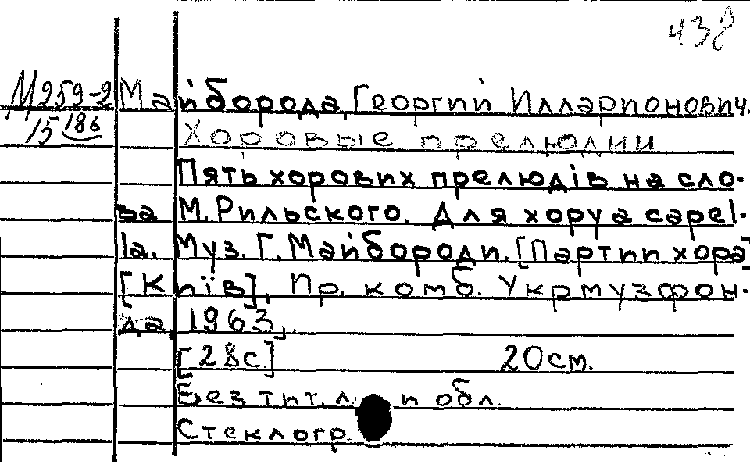 438
М259-2 Майборода, Георгий Илларионович.
15 186 Хоровые прелюдии
Пять хорових прелюдів на сло-
ва М. Рильского. Для хору a capel-
la. Муз. Г. Майбороди. [Партии хора]
[Київ], Пр. комб. Укрмузфон-
да, 1963,
[28с.] 20см.
Без тит. л. и обл.
Стеклогр.